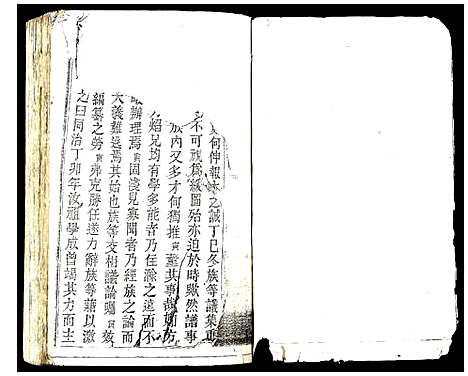 何仲報本之誠丁巳冬族等議集
不可視為緩圖殆亦迫於時歟然譜事
族內又多才何獨推寅董其事
炤兄均有學多能者乃任滁之遠而不
辦理焉寅固淺見寡聞者乃經族之論而
大義難違焉其始也族等交相議論囑寅效
編纂之勞寅弗克勝任遂力辭族等藉以激
之曰同治丁卯年汝祖學成曾竭其力而主